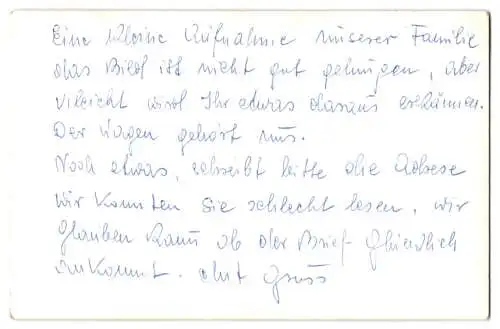 Eine kleine Aufnahme unserer Familie
das Bield ist nicht gut gelungen, aber
vileicht wird Ihr etwas daraus erkännen.
Der Wagen gehört uns.
Noch etwas, schreibt bitte die Adrese
wir konnten sie schlecht lesen, wir
glauben kaum ob der Brief glücklich
ankommt. Gruss